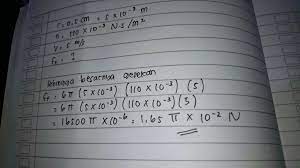 r = 0,5 cm = 5 × 10⁻³ m
η = 110 × 10⁻³ N·s/m²
V = 5 m/s
Fs = ?
besarnya gesekan
Fs = 6π (5 × 10⁻³) (110 × 10⁻³) (5)
= 6π (5 × 10⁻³) (110 × 10⁻³) (5)
= 16500 π × 10⁻⁶ = 1,65 π × 10⁻² N